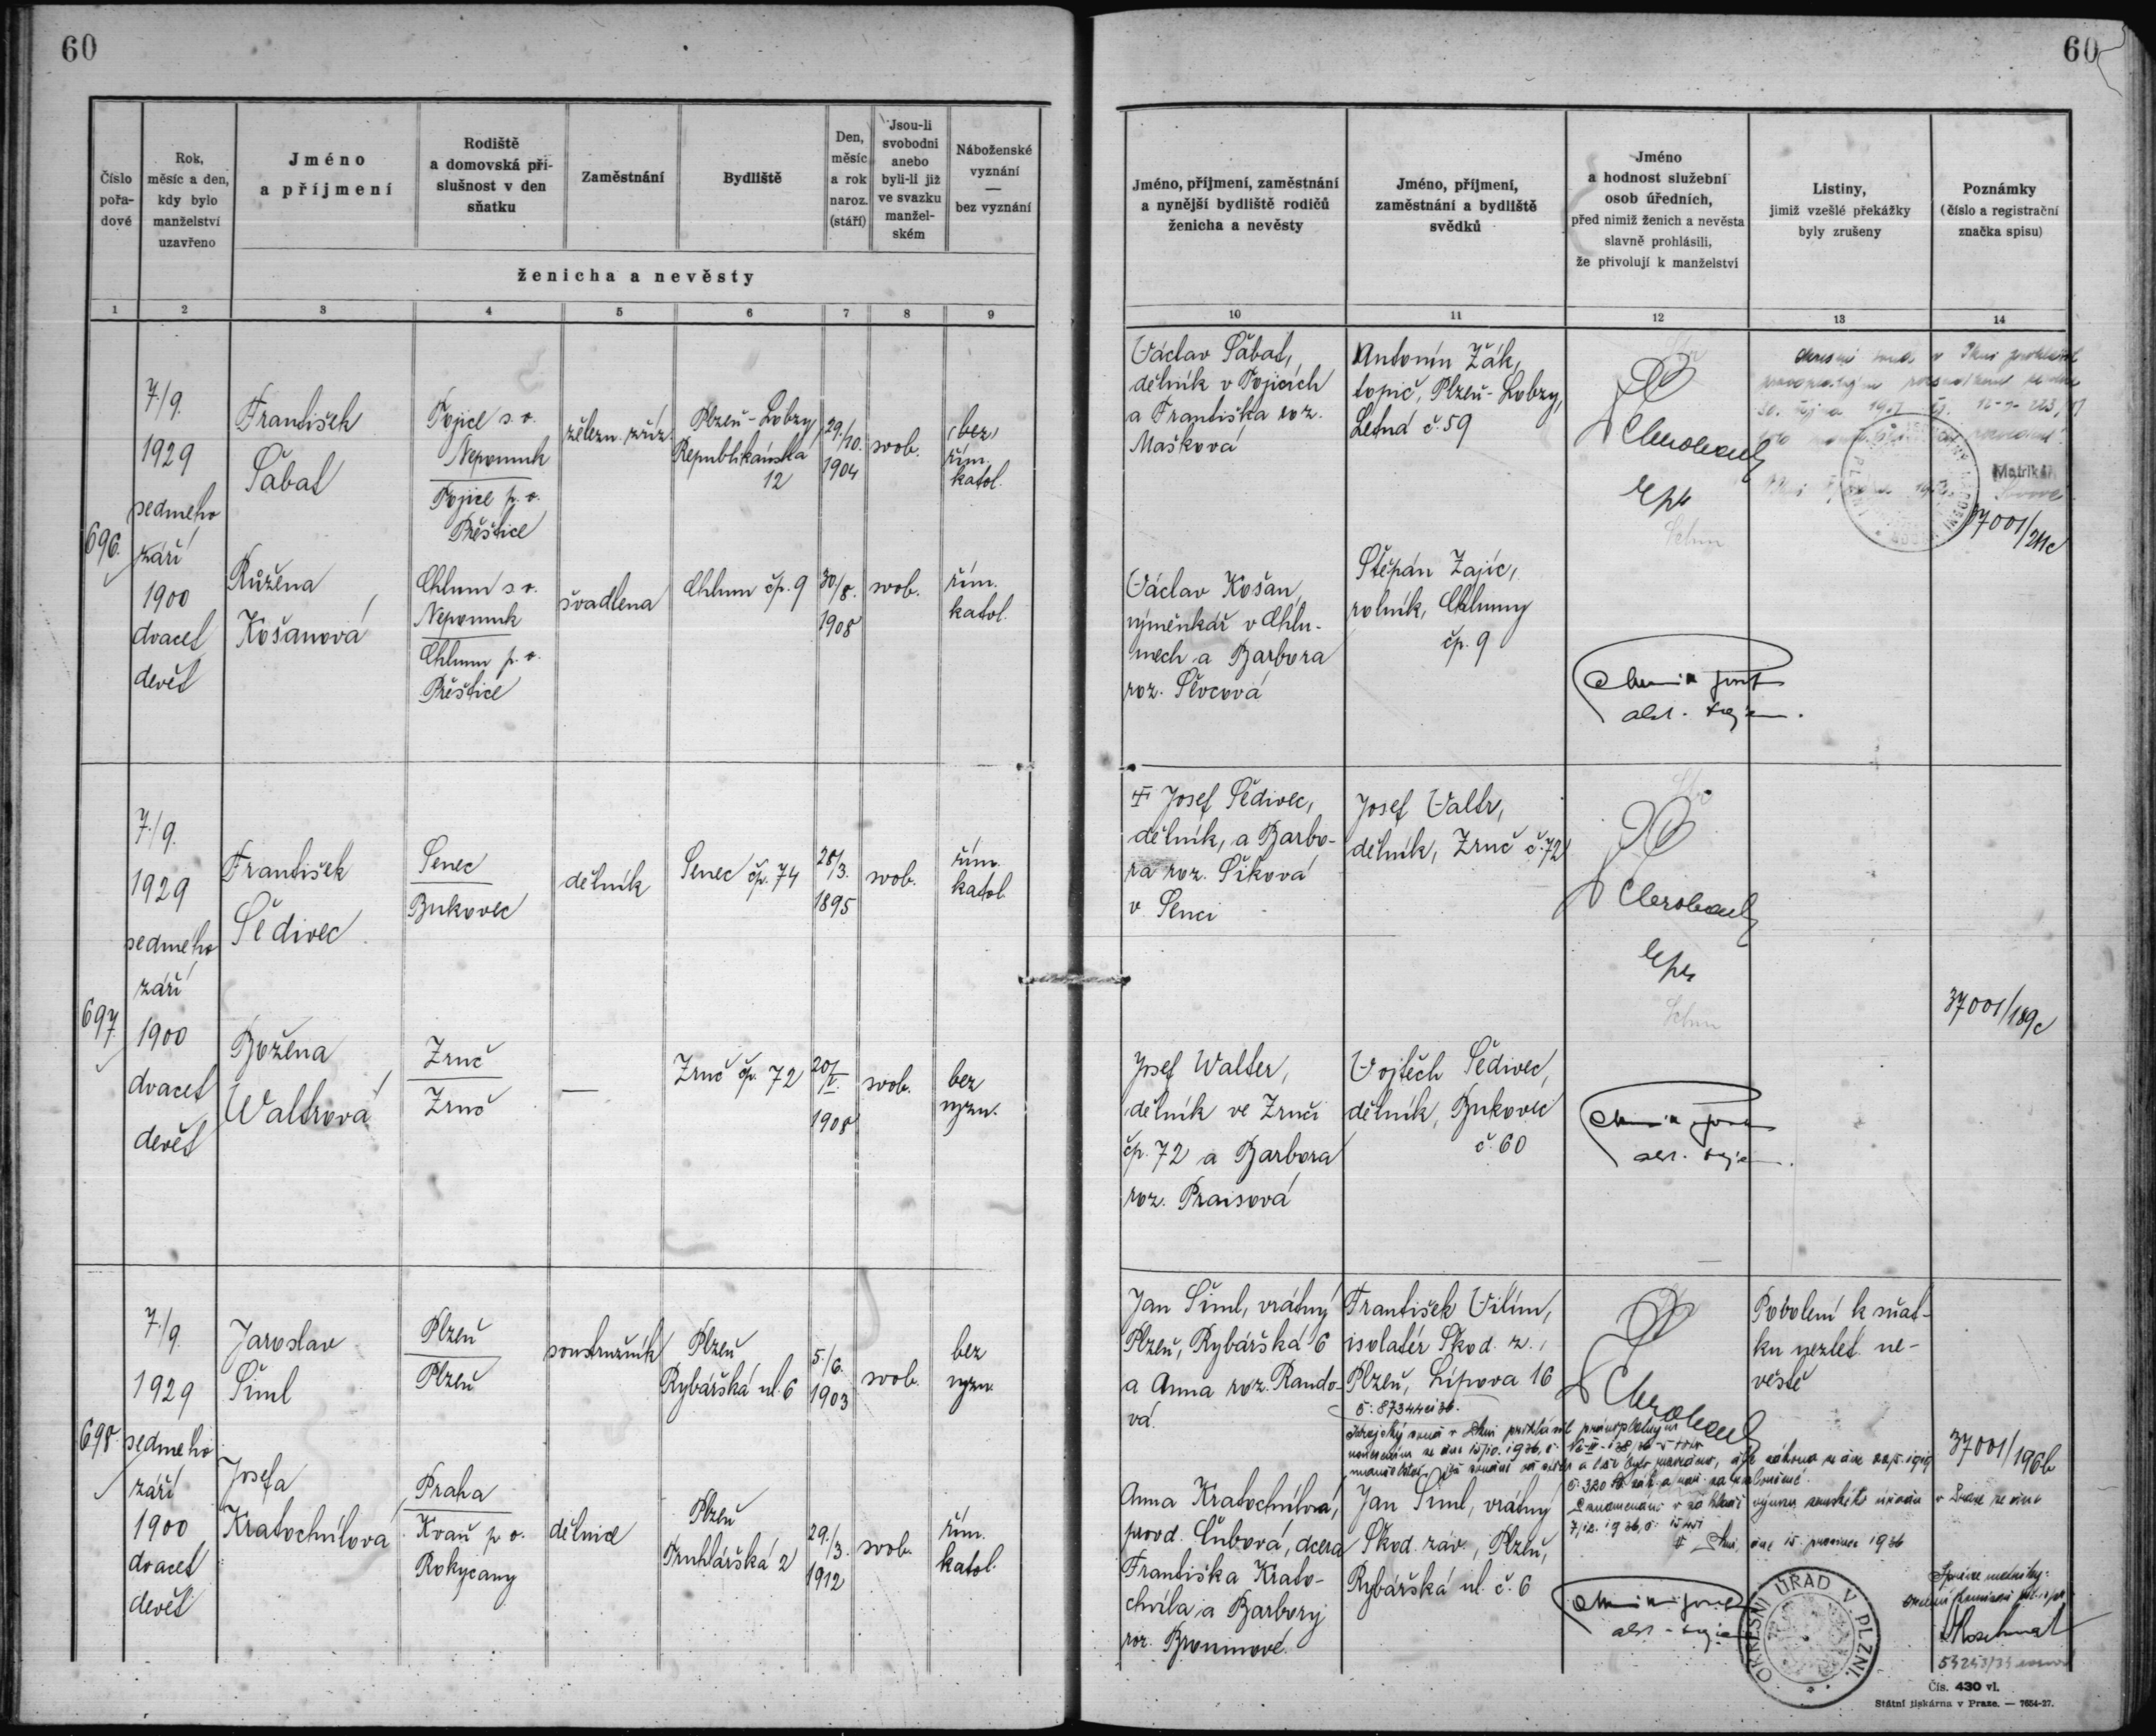 60
60
Číslo pořadové
Rok, měsíc a den, kdy bylo manželství uzavřeno
Jméno a příjmení
Rodiště a domovská příslušnost v den sňatku
Zaměstnání
Bydliště
Den, měsíc a rok naroz. (stáří)
Jsou-li svobodni anebo byli-li již ve svazku manželském
Náboženské vyznání — bez vyznání
ženicha a nevěsty
Jméno, příjmení, zaměstnání a nynější bydliště rodičů ženicha a nevěsty
Jméno, příjmení, zaměstnání a bydliště svědků
Jméno a hodnost služební osob úředních, před nimiž ženich a nevěsta slavně prohlásili, že přivolují k manželství
Listiny, jimiž vzešlé překážky byly zrušeny
Poznámky (číslo a registrační značka spisu)
1 2 3 4 5 6 7 8 9
10 11 12 13 14
696.
7/9.
1929
sedmého
září
1900
dvacet
devět
František
Šabat
Pojice s. o.
Nepomuk
Pojice p. o.
Přeštice
železn. zříz.
Plzeň-Lobzy
Republikánská
12
29./10.
1904
svob.
(bez)
řím.
katol.
Růžena
Košanová
Chlum s. o.
Nepomuk
Chlum p. o.
Přeštice
švadlena
Chlum čp. 9
30./8.
1908
svob.
řím.
katol.
Václav Šabat,
dělník v Pojicích
a Františka roz.
Mašková
Antonín Žák,
topič, Plzeň-Lobzy,
Letná č. 59
Václav Košan,
výměnkář v Chlu-
mech a Barbora
roz. Slocová
Štěpán Zajíc,
rolník, Chlumy
čp. 9
Matrikář
37001/211c
697.
7./9.
1929
sedmého
září
1900
dvacet
devět
František
Šedivec
Senec
Bukovec
dělník
Senec čp. 74
28/3.
1895
svob.
řím.
katol.
Božena
Waltrová
Zruč
Zruč
—
Zruč čp. 72
20/V.
1908
svob.
bez
vyzn.
† Josef Šedivec,
dělník, a Barbo-
ra roz. Šiková
v Senci
Josef Valtr,
dělník, Zruč č. 72
Josef Walter,
dělník ve Zruči
čp. 72 a Barbora
roz. Praisová
Vojtěch Šedivec,
dělník, Bukovec
č. 60
37001/189c
698.
7./9.
1929
sedmého
září
1900
dvacet
devět
Jaroslav
Šiml
Plzeň
Plzeň
soustružník
Plzeň
Rybářská ul. 6
5./6.
1903
svob.
bez
vyzn.
Josefa
Kratochvílová
Praha
Kvaň p. o.
Rokycany
dělnice
Plzeň
Truhlářská 2
29./3.
1912
svob.
řím.
katol.
Jan Šiml, vrátný
Plzeň, Rybářská 6
a Anna roz. Rando-
vá.
František Vilím,
isolatér Škod. z.,
Plzeň, Lipova 16
Povolení k sňat-
ku nezlet. ne-
věstě
Anna Kratochvílová,
provd. Čubová, dcera
Františka Krato-
chvíla a Barbory
roz. Brommové.
Jan Šiml, vrátný
Škod. záv., Plzeň,
Rybářská ul. č. 6
37001/196b
OKRESNÍ ÚŘAD V PLZNI.
Čís. 430 vl.
Státní tiskárna v Praze. — 7654-27.